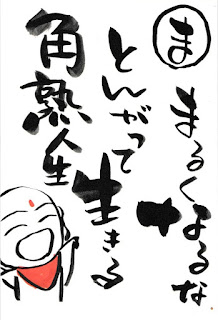 ま
まるくなるな
とんがって
生きる
角熟人生